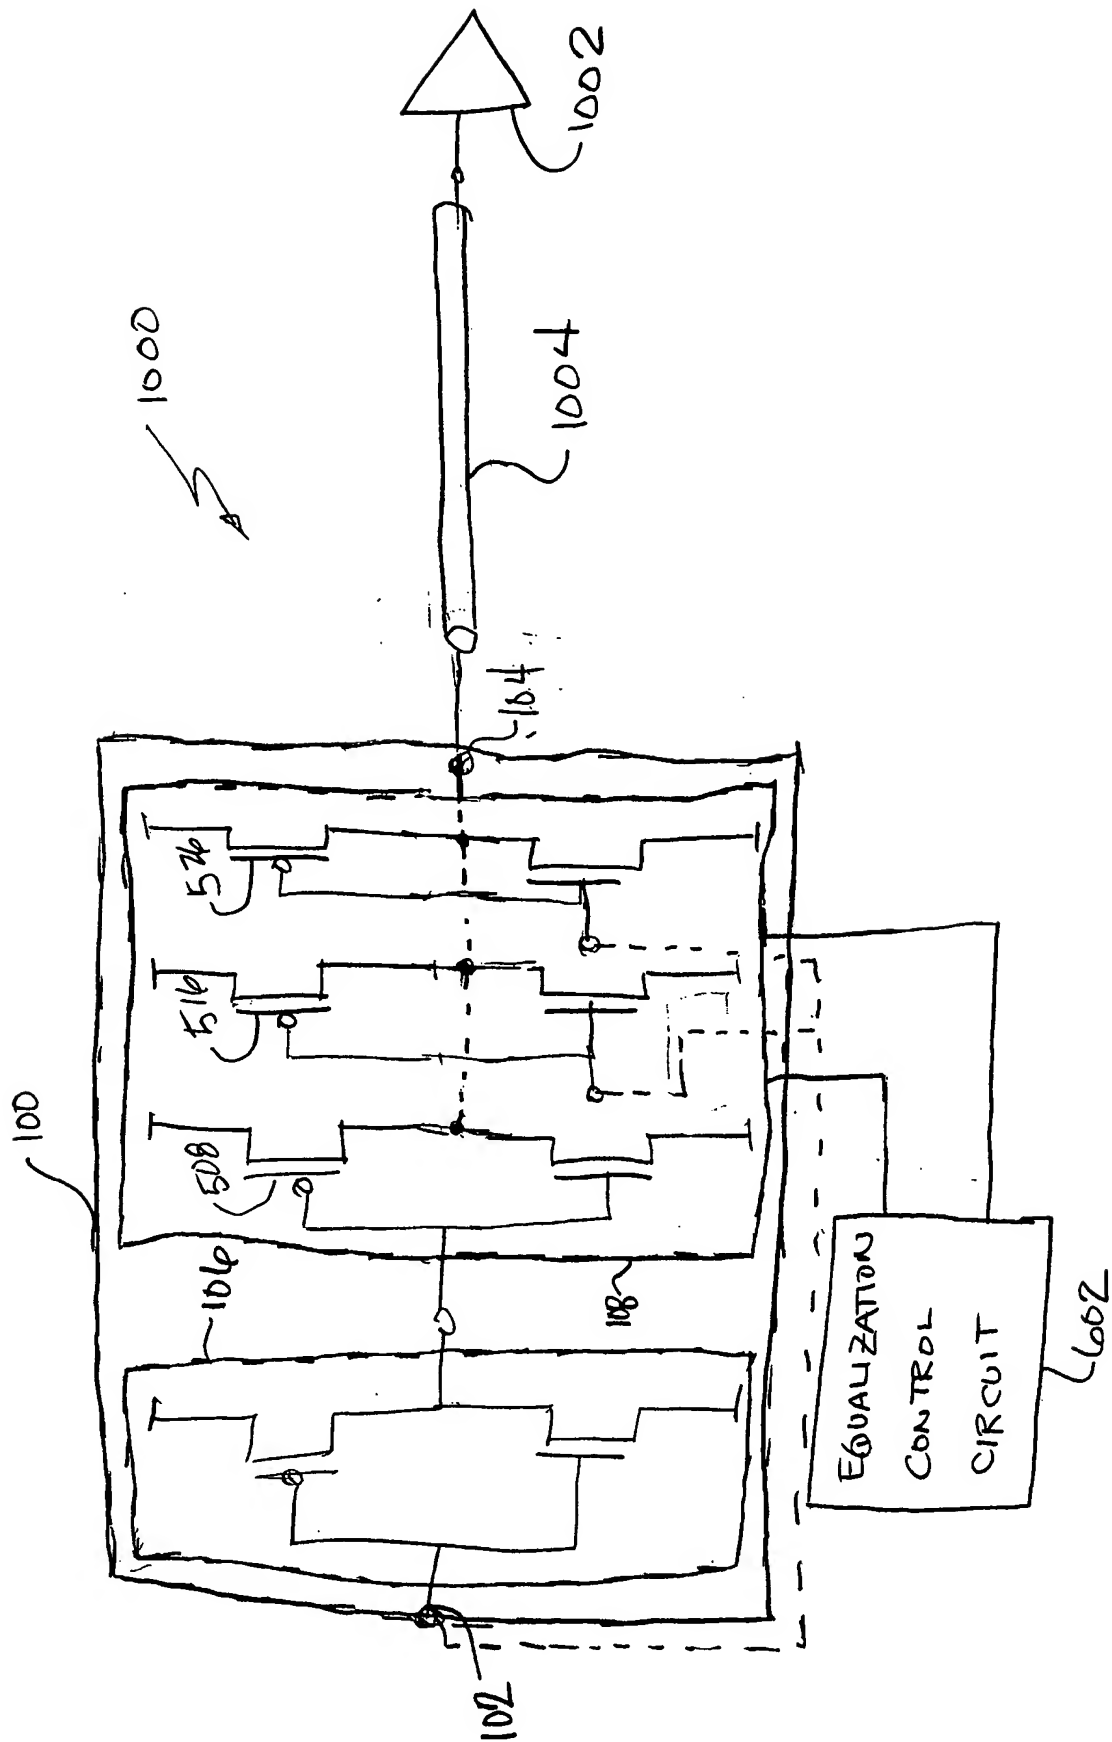 1000
1002
1004
104
100
526
516
508
106
108
102
EQUALIZATION
CONTROL
CIRCUIT
602